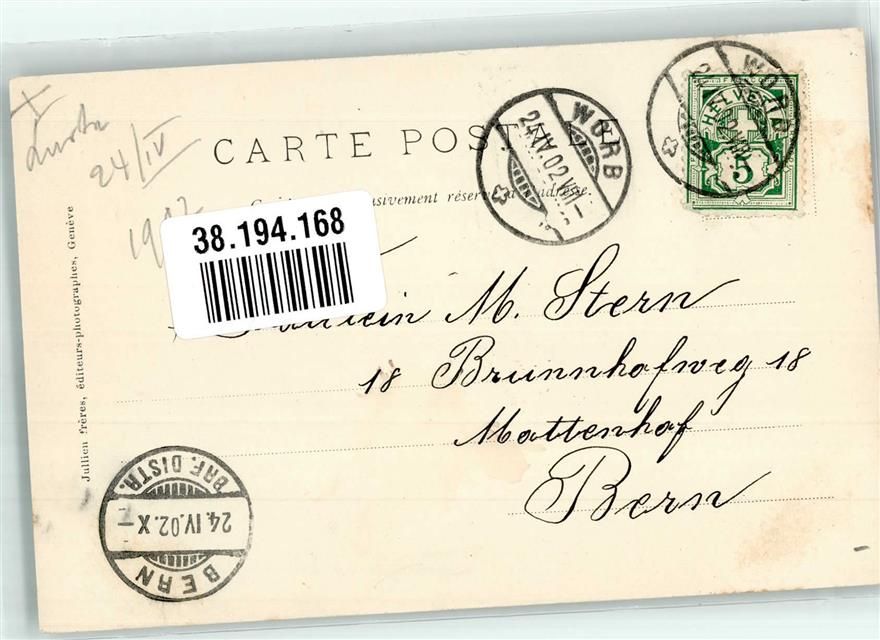 24/IV
CARTE POSTALE
réservé à l'adresse.
38.194.168
M. Stern
18 Brunnhofweg 18
Mattenhof
Bern
WORB
24.IV.02.VIII
WORB
HELVETIA
5
Jullien frères, éditeurs-photographes, Genève
BRF. DISTR.
24.IV.02.X
BERN